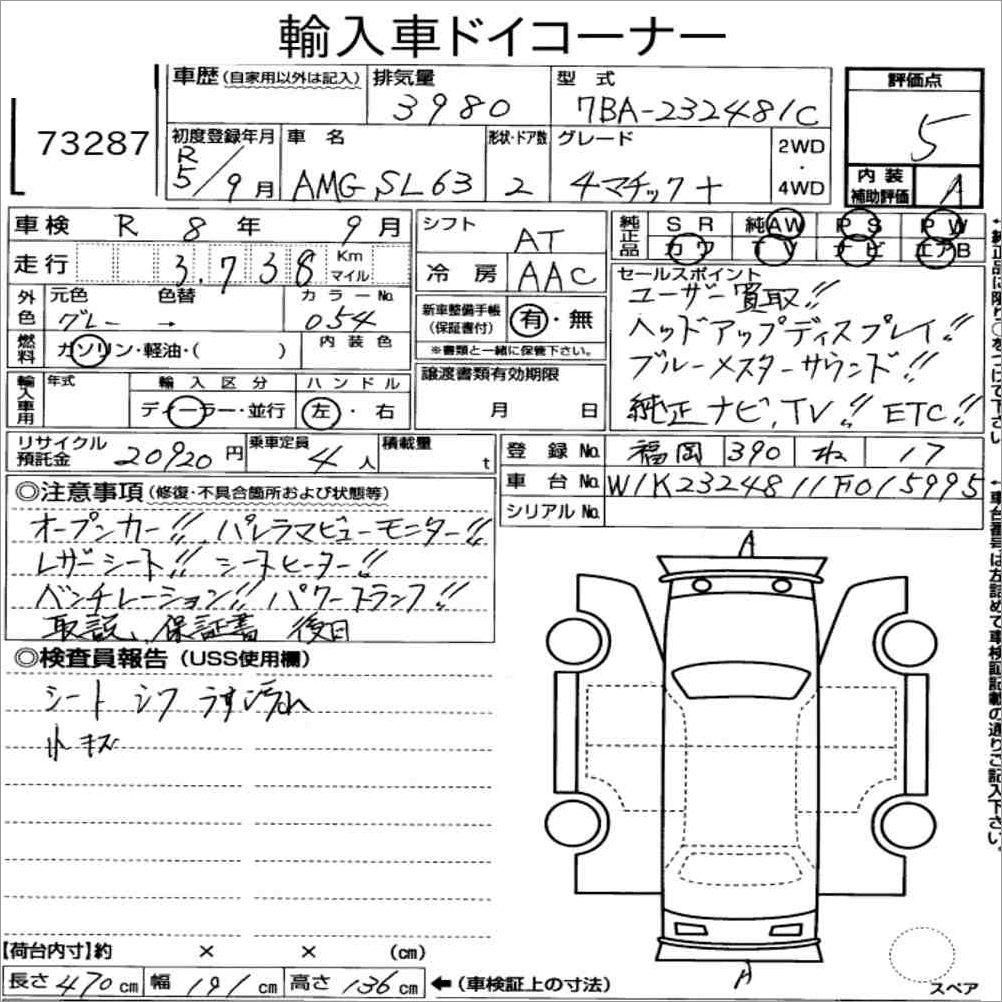 輸入車ドイコーナー
73287
車歴(自家用以外は記入) 排気量 3980 型式 7BA-232481C
初度登録年月 R5/9月 車名 AMG SL63 形状・ドア数 2 グレード 4マチック+ 2WD・4WD
評価点 5
内装補助評価 A
車検 R 8年 9月
走行 3,738 Km マイル
外色 元色 グレー 色替 → カラーNo. 054
燃料 ガソリン・軽油・( ) 内装色
輸入車用 年式 輸入区分 ディーラー・並行 ハンドル 左・右
シフト AT
冷房 AAC
新車整備手帳(保証書付) 有・無
※書類と一緒に保管下さい。
譲渡書類有効期限
月 日
純正品 SR 純AW PS PW
カワ TV ナビ エアB
セールスポイント
ユーザー買取!!
ヘッドアップディスプレイ!!
ブルメスターサウンド!!
純正ナビ、TV!! ETC!!
リサイクル預託金 20920円 乗車定員 4人 積載量 t
登録No. 福岡 390 ね 17
車台No. W1K2324811F015995
シリアルNo.
◎注意事項(修復・不具合箇所および状態等)
オープンカー!! パノラマビューモニター!!
レザーシート!! シートヒーター!!
ベンチレーション!! パワートランク!!
取説、保証書 後日
◎検査員報告(USS使用欄)
シート シワ うす汚れ
小キズ
A
A
スペア
【荷台内寸】約 × × (cm)
長さ 470cm 幅 191cm 高さ 136cm ←(車検証上の寸法)